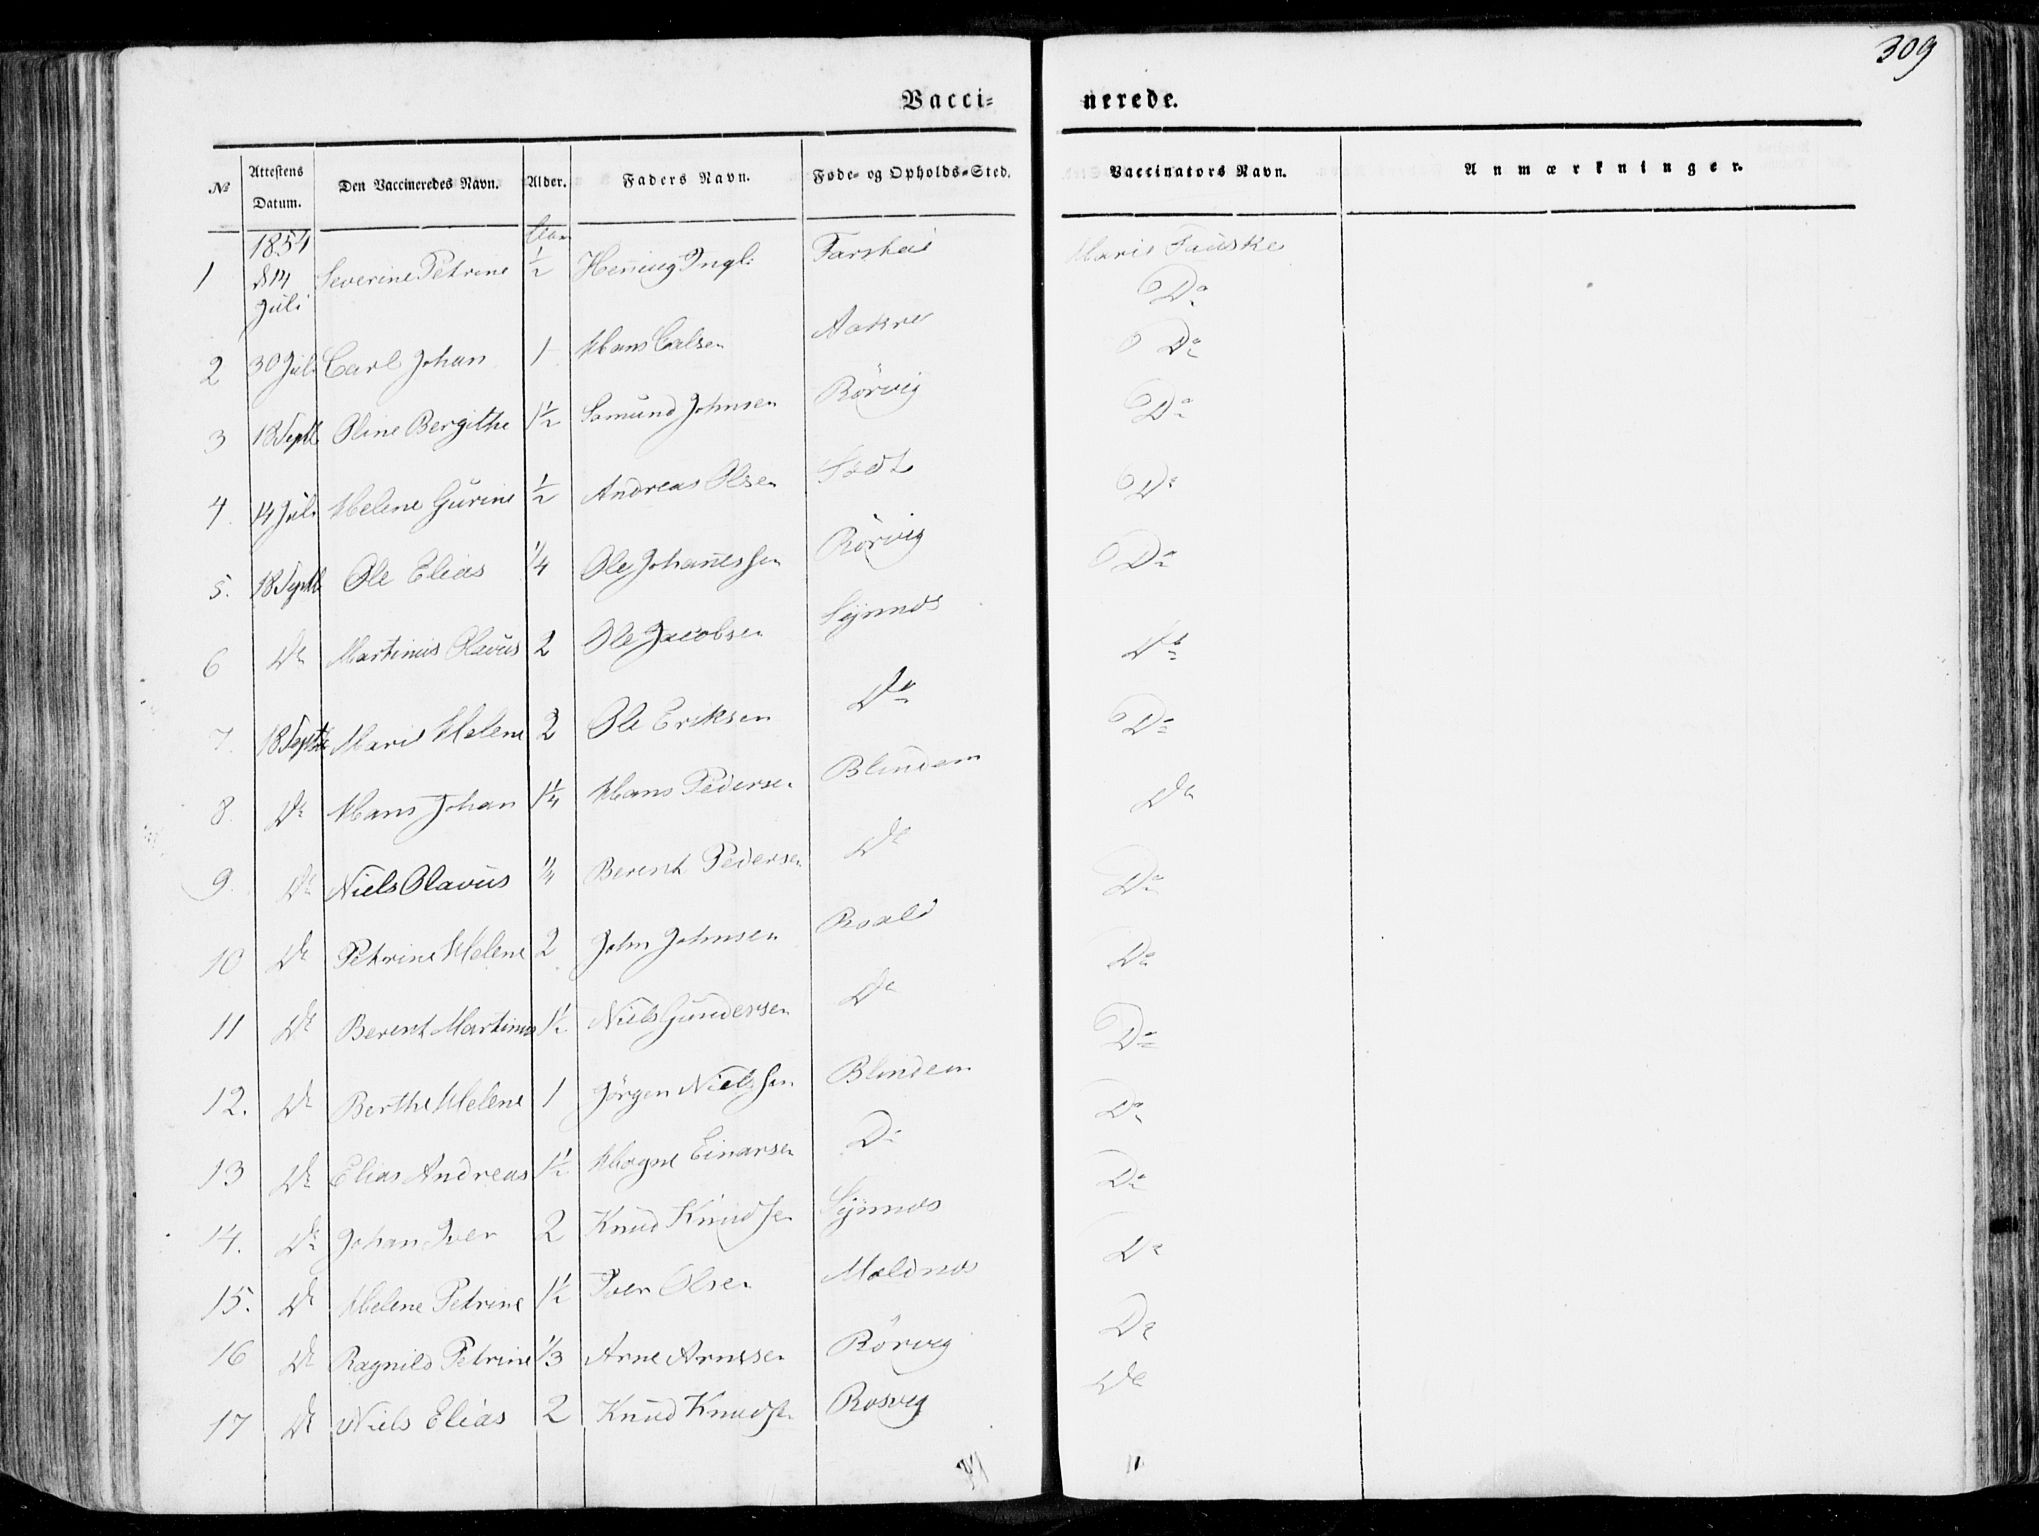 309
Vaccinerede.
№ Attestens Datum. Den Vaccineredes Navn. Alder. Faders Navn. Føde- og Opholds-Sted. Vaccinators Navn. Anmærkninger.
1854 Aar
1 14 Juli Severine Petrine ½ Hen̄ing Ingl: Farstad Marie Fauske
Do
2 30 Juli Carl Johan 1 Hans Carlsen Aakre Do
3 18 Septb Oline Bergithe 1½ Somund Johnsen Rörvig Do
4. 14 Juli Helene Gurine ½ Andreas Olsen Do
5. 18 Septb Ole Elias ¼ Ole Johan̄essen Rörvig Do
6 Do Martinus Olavus 2 Ole Jacobsen Synnes Do
7. 18 Septb Marie Helene 2 Ole Eriksen Do Do
8. Do Hans Johan 1¼ Hans Pedersen Blindem Do
9. Do Niels Olavus ¼ Berent Pedersen Do Do
10 Do Petrine Helene 2 John Johnsen Roald Do
11 Do Berent Martinus 1½ Niels Gundersen Do Do
12. Do Berthe Helene 1 Jörgen Nielssen Blindem Do
13 Do Elias Andreas 1½ Mogne Einarsen Do Do
14. Do Johan Iver 2 Knud Knudsen Synnes Do
15. Do Helene Petrine 1½ Iver Olsen Moldnes Do
16 Do Ragnild Petrine ⅓ Arne Arnesen Rörvig Do
17 Do Niels Elias 2 Knud Knudsen Rosvig